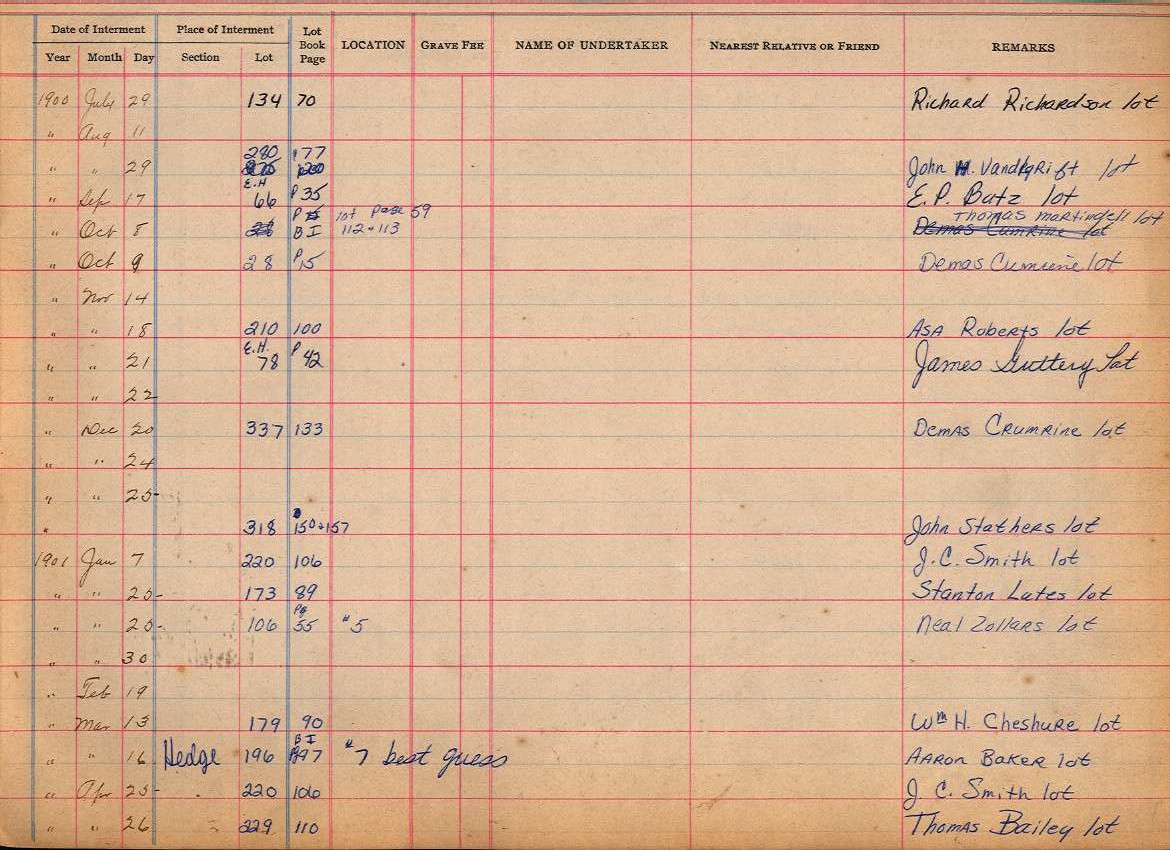 Date of Interment Place of Interment Lot Book Page LOCATION GRAVE FEE NAME OF UNDERTAKER NEAREST RELATIVE OR FRIEND REMARKS
Year Month Day Section Lot
1900 July 29 134 70 Richard Richardson lot
" Aug 11
280 177
" " 29 John H. Vandegrift lot
E.H
" Sep 17 66 P 35 E. P. Butz lot
P 15 lot page 59 Thomas Martindell lot
" Oct 8 28 B I 112+113 Demas Cumrine lot
" Oct 9 28 P 15 Demas Cumrine lot
" Nov 14
" " 18 210 100 Asa Roberts lot
E.H.
" " 21 78 P 42 James Guttery Lot
" " 22
" Dec 20 337 133 Demas Crumrine lot
" " 24
" " 25
" 318 150+157 John Stathers lot
1901 Jan 7 220 106 J.C. Smith lot
" " 25 173 89 Stanton Lutes lot
Pg
" " 25 106 55 #5 Neal Zollars lot
" " 30
" Feb 19
" Mar 13 179 90 Wm H. Cheshure lot
B I
" " 16 Hedge 196 P97 #7 best guess Aaron Baker lot
" Apr 25 220 106 J. C. Smith lot
" " 26 229 110 Thomas Bailey lot